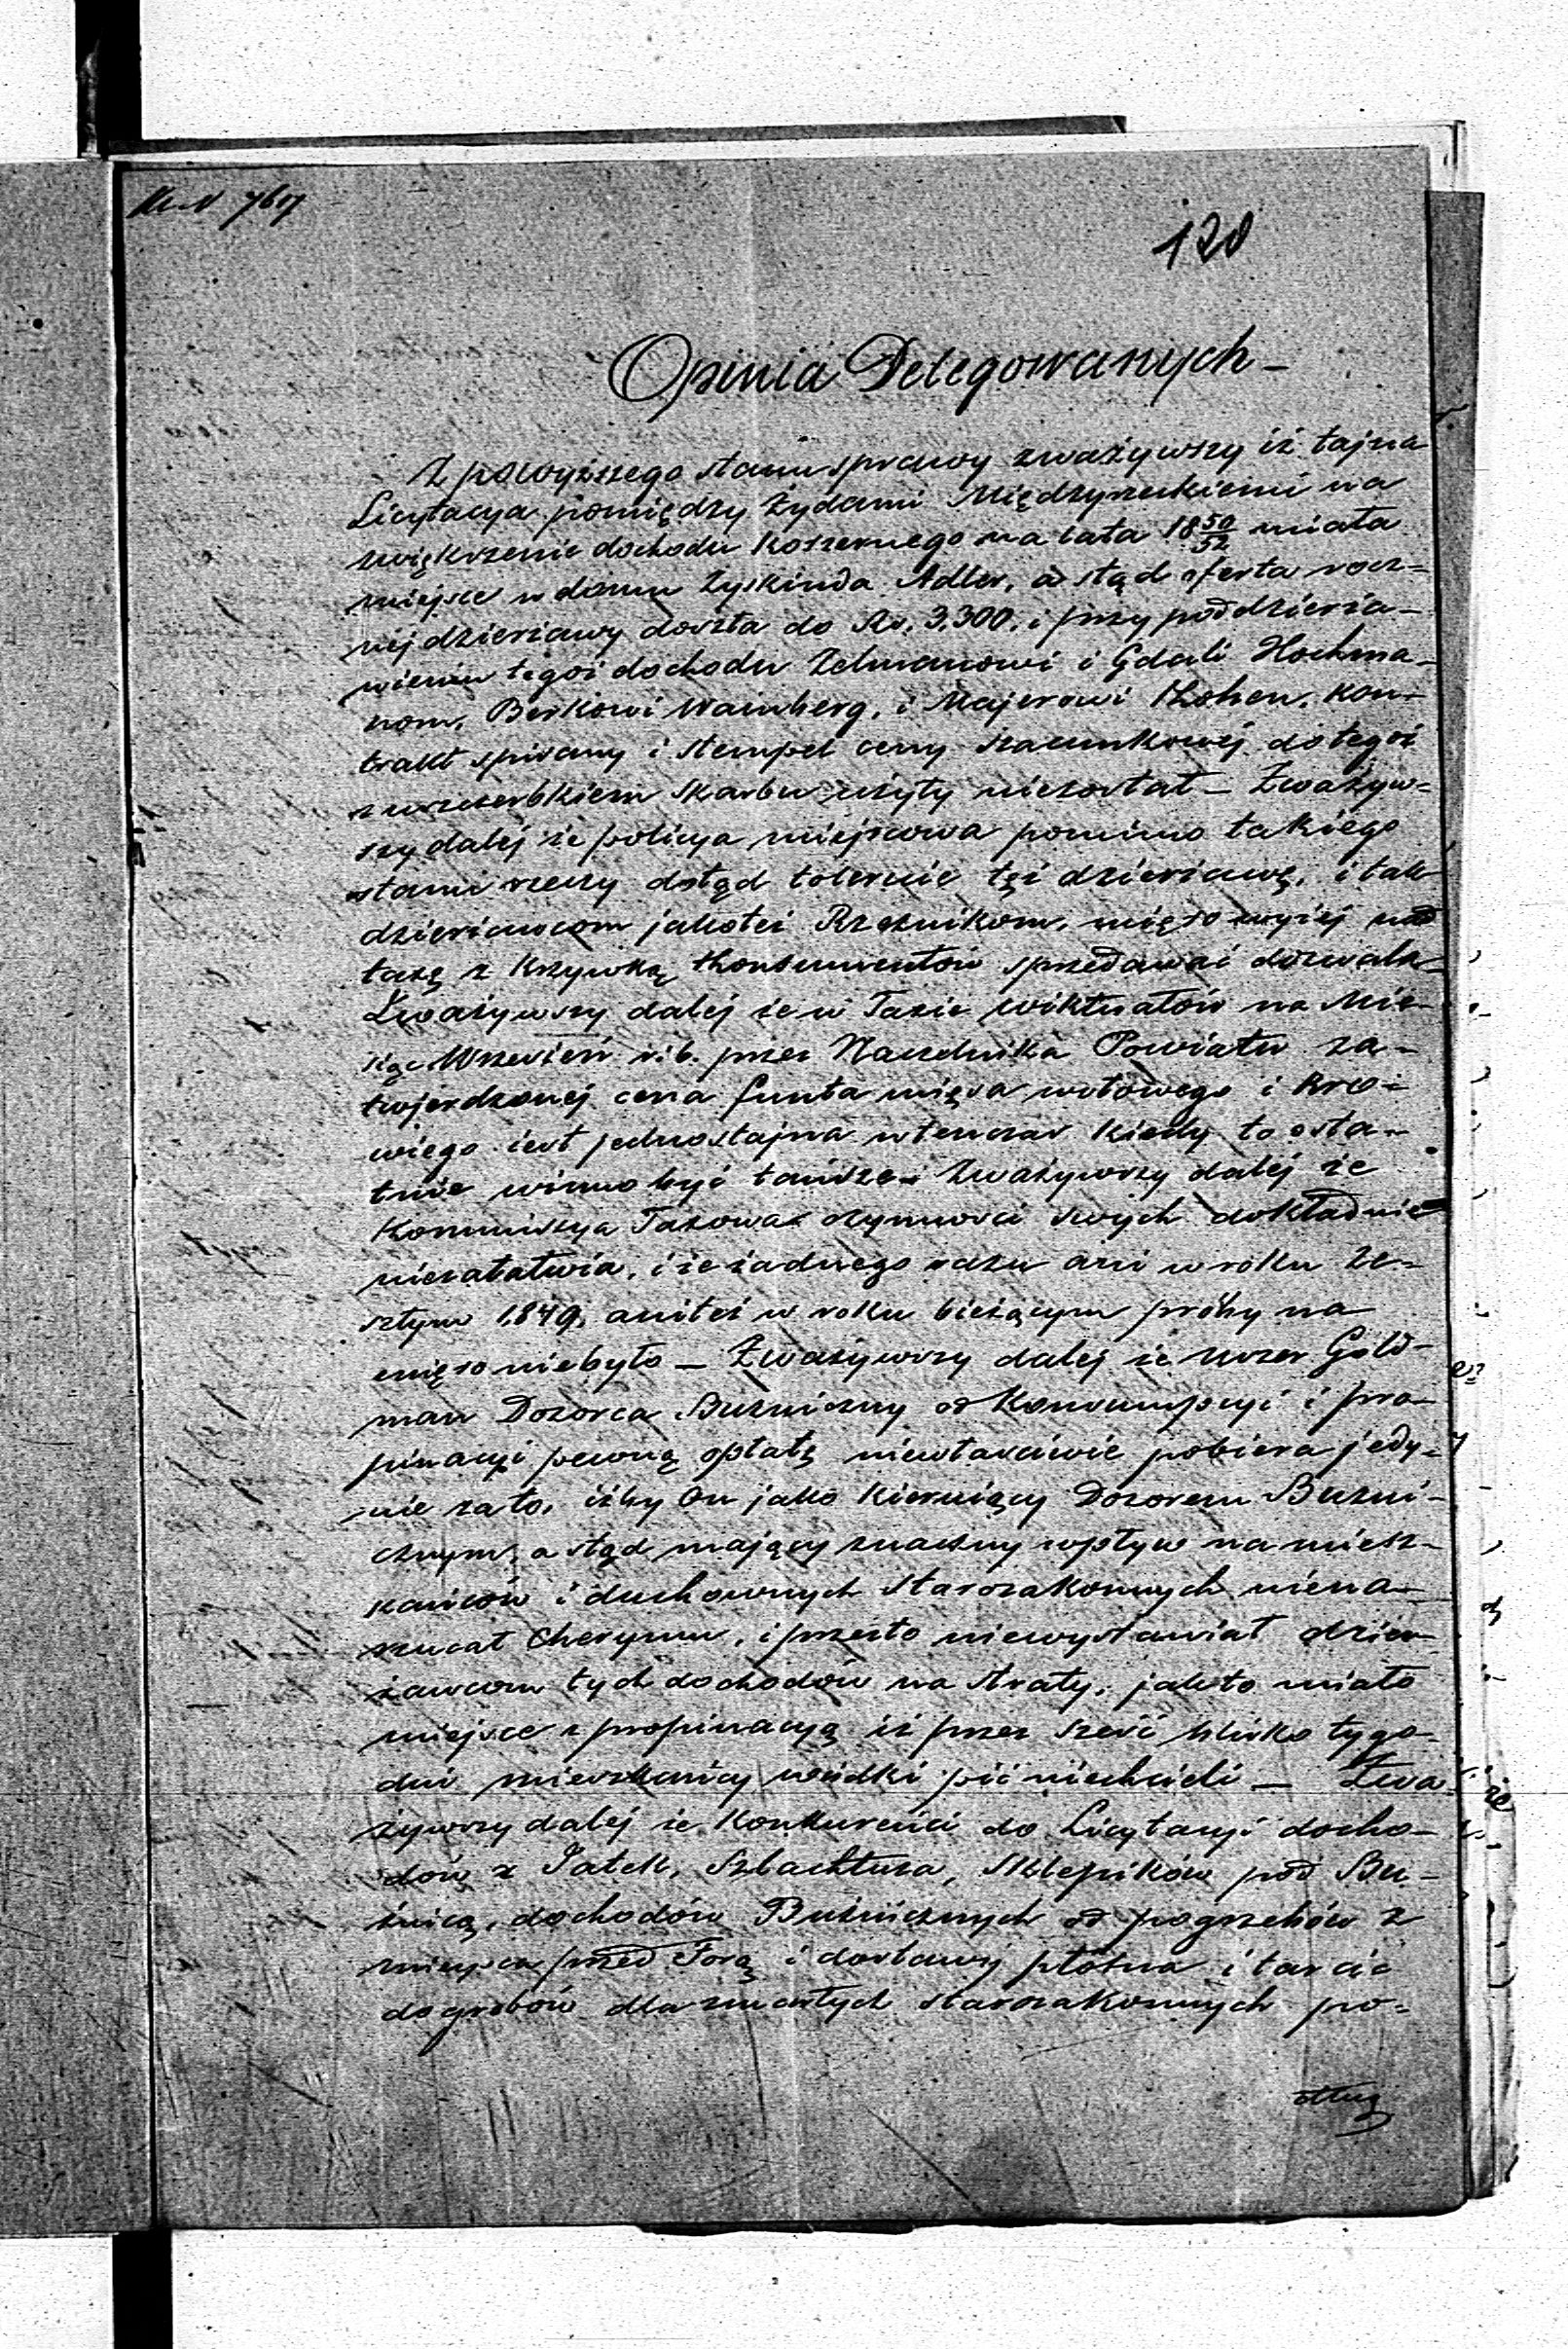 120
Opinia Delegowanych –
Z powyższego stanu sprawy zważywszy iż tajna
Licytacya pomiędzy Żydami Międzyrzeckiemi na
zwiększenie dochodu koszernego na lata 18 50/52 miała
miejsce w domu Zyskinda Adler, a stąd oferta rocz-
nej dzierżawy doszła do Rs. 3,300. i przy poddzierża-
wieniu tegoż dochodu Zelmanowi i Gdali Hochma-
nom, Berkowi Wainberg, i Majerowi Kohen, kon-
trakt spisany i stempel ceny szacunkowej do tegoż
z uszczerbkiem Skarbu użyty niezostał – Zważyw-
szy dalej że policya miejscowa pomimo takiego
stanu rzeczy dotąd toleruje tęż dzierżawę, i tak
dzierżawcom jakoteż Rzeźnikom, mięso wyżej nad
taxę z krzywką Konsumentów sprzedawać dozwala
Zważywszy dalej że w Taxie wiktuałów na Mie-
siąc Wrzesień r. b. przez Naczelnika Powiatu za-
twierdzonej cena funta mięsa wołowego i kro-
wiego jest jednostajna wtenczas kiedy to osta-
tnie winno być tańsze – Zważywszy dalej że
Kommissya Taxowa czynności swych dokładnie
niezałatwia, i że żadnego razu ani w roku ze-
szłym 1849, aniteż w roku bieżącym próby na
mięso niebyło – Zważywszy dalej że Uszer Gold-
man Dozorca Bużniczny od Konsumpcyi i pro-
pinacyi pewną opłatę niewłaściwie pobiera jedy-
nie zato, iżby On jako kierujący Dozorem Bużni-
cznym, a stąd mający znaczny wpływ na miesz-
kańców i duchownych starozakonnych niena-
rzucał Cherymu, i przeto niewystawiał dzier-
żawcom tych dochodów na straty, jak to miało
miejsce z propinacyą iż przez sześć blisko tygo-
dni mieszkańcy wódki pić niechcieli – Zwa-
żywszy dalej że Konkurenci do Licytacyi docho-
dów z Jatek, Szlachtuza, Sklepików pod Bu-
żnicą, dochodów Bużnicznych od pogrzebów z
miejsca przed Torą i dostawy płótna i tarcic
do grobów dla zmarłych starozakonnych po-